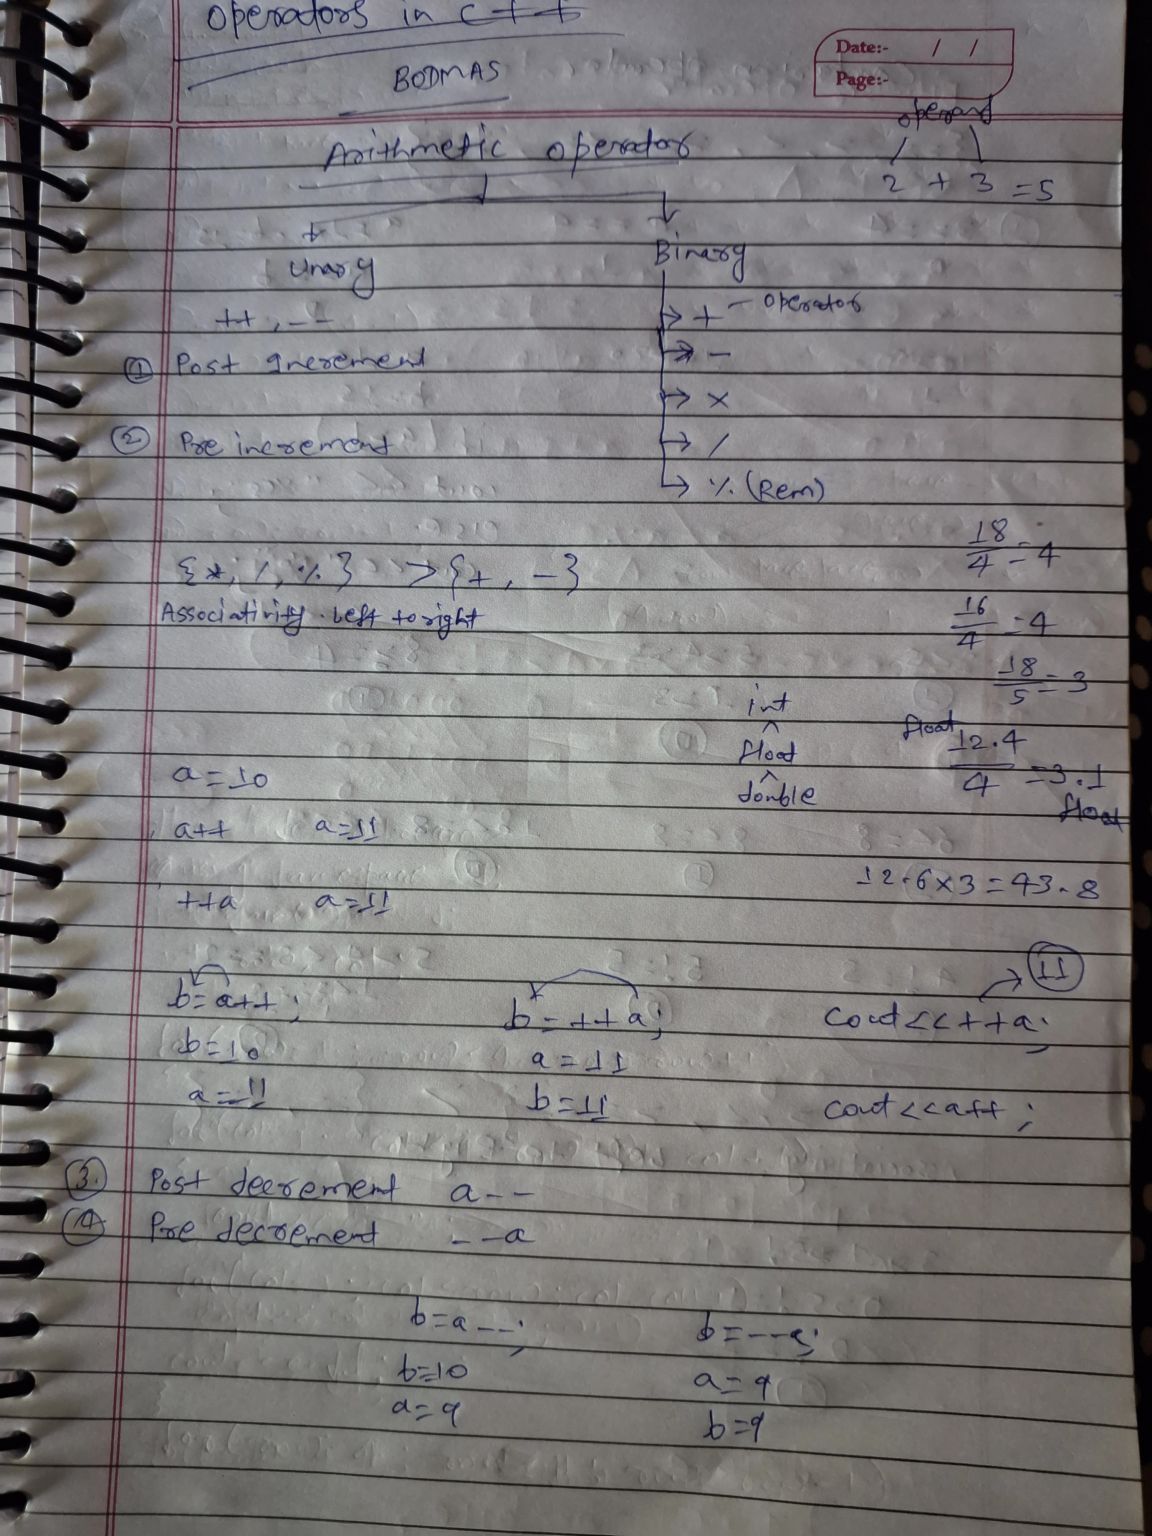 operators in c++
BODMAS
Date:- / /
Page:-
operand
2 + 3 = 5
Arithmetic operator
Unary
Binary
++, --
+ - operator
① Post Increment
-
×
② Pre increment
/
% (Rem)
18/4 = 4
{*, /, %} > {+, -}
Associativity . Left to right
16/4 = 4
18/5 = 3
int
^
float
^
double
float 12.4/4 = 3.1
float
a = 10
a++ a = 11
12.6 × 3 = 43.8
++a a = 11
b = a++;
b = 10
a = 11
b = ++a;
a = 11
b = 11
11
cout<<++a;
cout<<a++;
③. Post decrement a--
④ Pre decrement --a
b=a--;
b=10
a=9
b=--a;
a=9
b=9